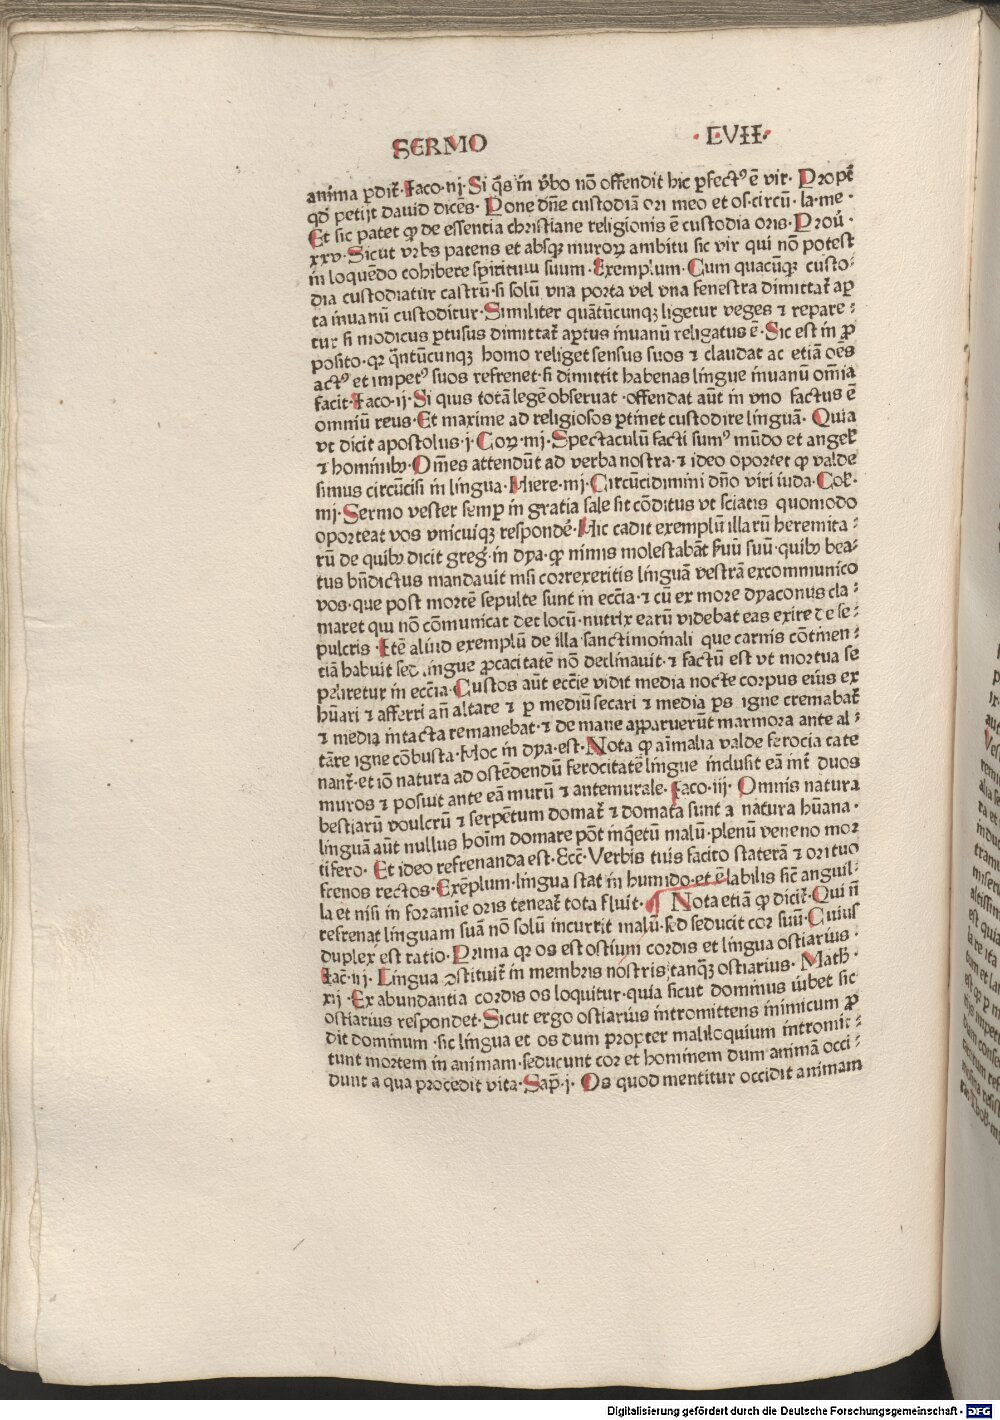 SERMO ·LVII·
anima ꝑdit̄·Jaco·iij·Si q̄s in v̄bo nō offendit hic ꝑfectꝰ ē vir· Propt̄
qd̄ petijt dauid dicēs· Pone dn̄e custodiā ori meo et os·circū·la·me·
Et sic patet ꝙ de essentia christiane religionis ē custodia oris·Proū·
xxv·Sicut vrbs patens et absqꝫ muroꝝ ambitu sic vir qui nō potest
in loquēdo cohibere spiritum suum·Exemplum·Cum quacūqꝫ custo⸗
dia custodiatur castrū·si solū vna porta vel vna fenestra dimittat̄ aꝑ
ta inuanū custoditur·Similiter quātūcunqꝫ ligetur veges ⁊ repare⸗
tur si modicus ꝑtusus dimittat̄ aꝑtus inuanū religatus ē·Sic est in ꝓ
posito·qꝛ q̄ntūcunqꝫ homo religet sensus suos ⁊ claudat ac etiā oēs
actꝰ et impetꝰ suos refrenet·si dimittit habenas lingue inuanū om̄ia
facit·Jaco·ij·Si quis totā legē obseruat·offendat aūt in vno factus ē
omniū reus·Et maxime ad religiosos ꝑtinet custodire linguā· Quia
vt dicit apostolus·j·Coꝝ·iiij·Spectaculū facti sumꝰ mūdo et angel̄
⁊ hominibꝫ·Om̄es attendūt ad verba nostra·⁊ ideo oportet ꝙ valde
simus circūcisi in lingua·Hiere·iiij·Circūcidimini dn̄o viri iuda·Col̄·
iiij·Sermo vester semꝑ in gratia sale sit cōditus vt sciatis quomodo
oporteat vos vnicuiqꝫ respondē·Hic cadit exemplū illarū heremita⸗
rū de quibꝫ dicit greḡ·in dya·ꝙ nimis molestabāt ẜuū suū·quibꝫ bea⸗
tus bn̄dictus mandauit nisi correxeritis linguā vestrā excommunico
vos·que post mortē sepulte sunt in ecc̄ia·⁊ cū ex more dyaconus cla⸗
maret qui nō cōmunicat det locū·nutrix earū videbat eas exire de se⸗
pulcris·Itē aliud exemplū de illa sanctimoniali que carnis cōtinen⸗
tiā habuit sed lingue ꝓcacitatē nō declinauit·⁊ factū est vt mortua se
peliretur in ecc̄ia·Custos aūt ecc̄ie vidit media nocte corpus eius ex
hūari ⁊ afferri an̄ altare ⁊ ꝑ mediū secari ⁊ media ꝑs igne cremabat̄
⁊ media intacta remanebat·⁊ de mane apparuerūt marmora ante al⸗
tāre igne cōbusta·Hoc in dya·est·Nota ꝙ aīmalia valde ferocia cate
nant̄·et iō natura ad ostēdendū ferocitatē lingue inclusit eā int̄ duos
muros ⁊ posiuit ante eā murū ⁊ antemurale·Jaco·iij· Omnis natura
bestiarū voulcrū ⁊ serpētum domat̄ ⁊ domata sunt a natura hūana·
linguā aūt nullus hoīm domare pōt inq̄etū malū·plenū veneno mor
tifero· Et ideo refrenanda est·Ecc̄·Verbis tuis facito staterā ⁊ ori tuo
frenos rectos·Exēplum·lingua stat in humido·et ē labilis sic̄ anguil⸗
la et nisi in foramīe oris teneat̄ tota fluit·¶ Nota etiā ꝙ dicit̄·Qui n̄
refrenat linguam suā nō solū incurrit malū·sed seducit cor suū·Cuius
duplex est ratio·Prima qꝛ os est ostium cordis et lingua ostiarius·
Jac̄·iij·Lingua ꝯstituit̄ in membris nostris tanqꝫ ostiarius· Math̄·
xij·Ex abundantia cordis os loquitur·quia sicut dominus iubet sic
ostiarius respondet·Sicut ergo ostiarius intromittens inimicum ꝓ
dit dominum·sic lingua et os dum propter maliloquium intromit⸗
tunt mortem in animam·seducunt cor et hominem dum animā occi⸗
dunt a qua procedit vita·Sap̄·j· Os quod mentitur occidit animam
Digitalisierung gefördert durch die Deutsche Forschungsgemeinschaft - DFG